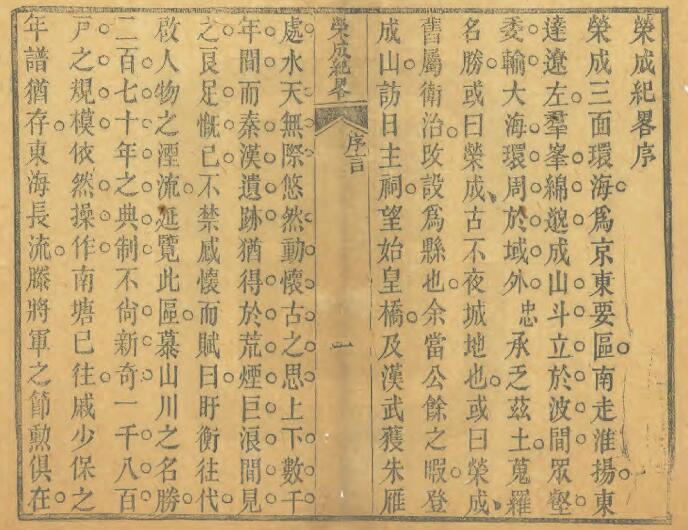 榮成紀畧序
榮成三面環海爲京東要區南走淮揚東
達遼左羣峯綿邈成山斗立於波間眾壑
委輸大海環周於域外忠承乏茲土蒐羅
名勝或曰榮成古不夜城地也或曰榮成
舊屬衛治改設爲縣也余當公餘之暇登
成山訪日主祠望始皇橋及漢武獲朱雁
榮成紀畧 序言 一
處水天無際悠然動懷古之思上下數千
年間而秦漢遺跡猶得於荒煙巨浪間見
之良足慨已不禁感懷而賦曰盱衡往代
啟人物之湮流延覽此區慕山川之名勝
二百七十年之典制不尙新奇一千八百
戸之規模依然操作南塘已往戚少保之
年譜猶存東海長流滕將軍之節勳俱在